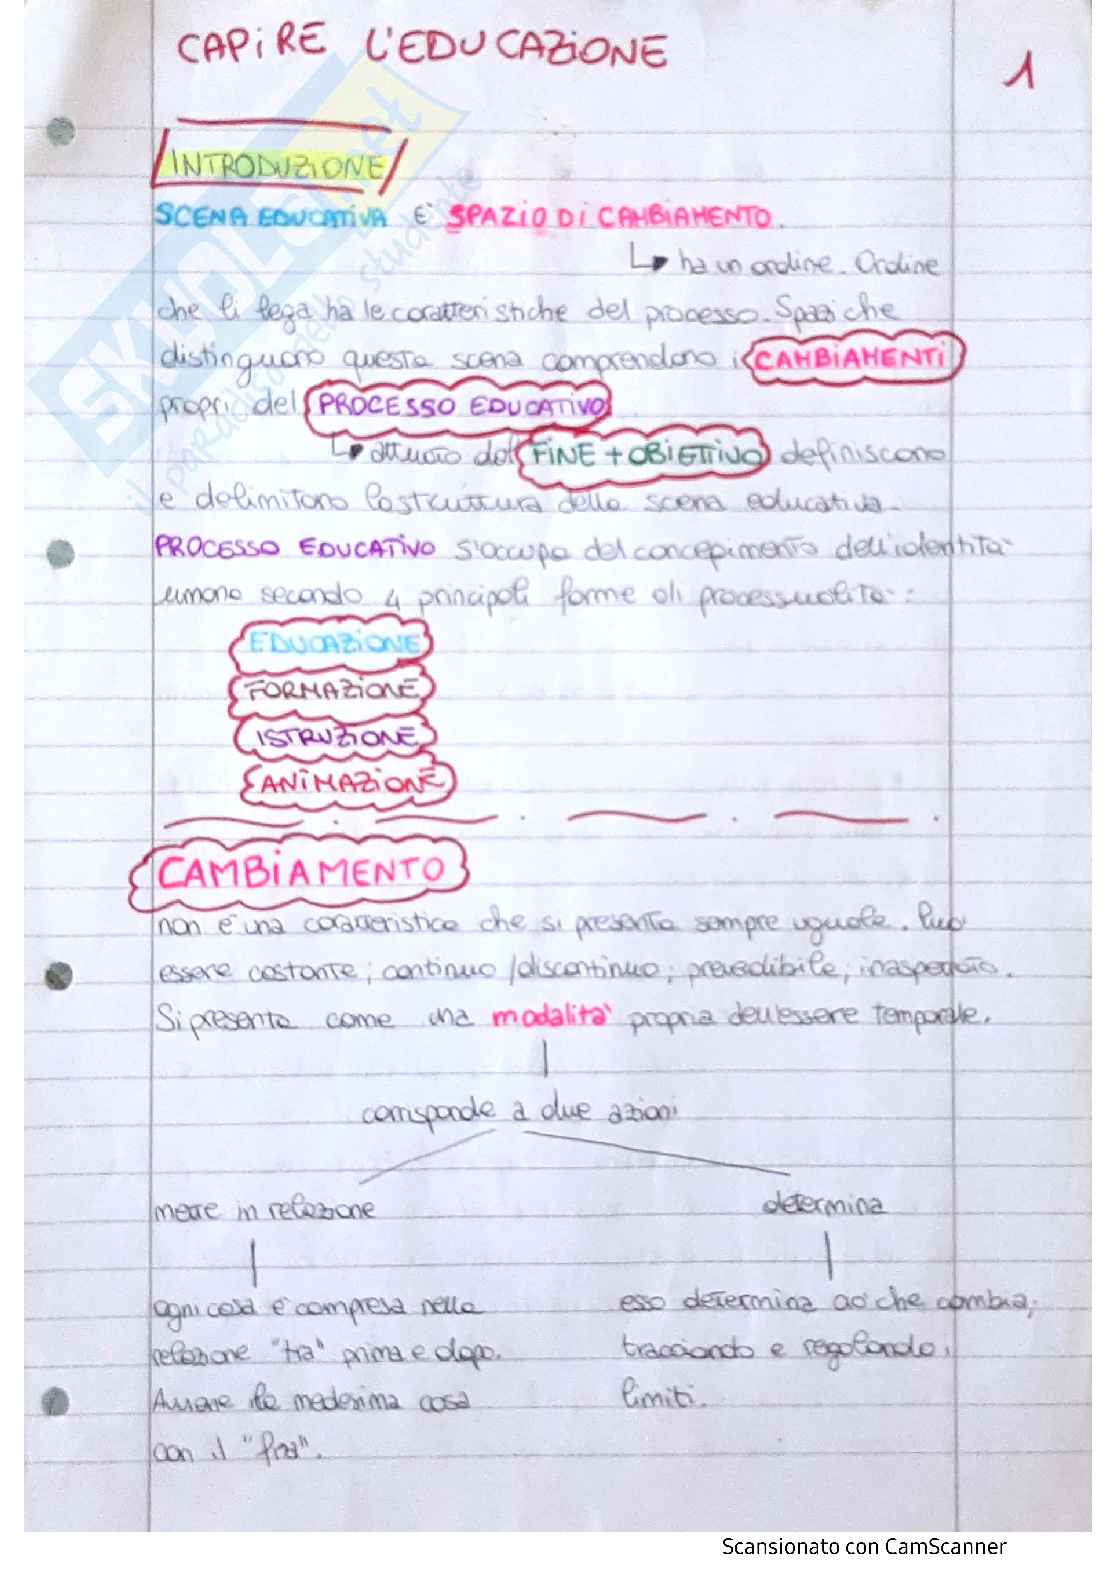 CAPIRE L'EDUCAZIONE
1
INTRODUZIONE
SCENA EDUCATIVA E' SPAZIO DI CAMBIAMENTO.
ha un ordine. Ordine
che li lega ha le caratteristiche del processo. Spazi che
distinguono questa scena comprendono i CAMBIAMENTI
propri del PROCESSO EDUCATIVO
attuato dal FINE + OBIETTIVO definiscono
e delimitano la struttura della scena educativa.
PROCESSO EDUCATIVO s'occupa del concepimento dell'identità
umana secondo 4 principali forme di processualità:
EDUCAZIONE
FORMAZIONE
ISTRUZIONE
ANIMAZIONE
CAMBIAMENTO
non è una caratteristica che si presenta sempre uguale. Può
essere costante; continuo/discontinuo; prevedibile; inaspettato.
Si presenta come una modalità propria dell'essere temporale.
corrisponde a due azioni
mette in relazione
determina
ogni cosa è compresa nella
relazione "tra" prima e dopo.
Avviene la medesima cosa
con il "fra".
esso determina ciò che cambia,
tracciando e regolando i
limiti.
SKUOLA.net
il paradiso dello studente
Scansionato con CamScanner